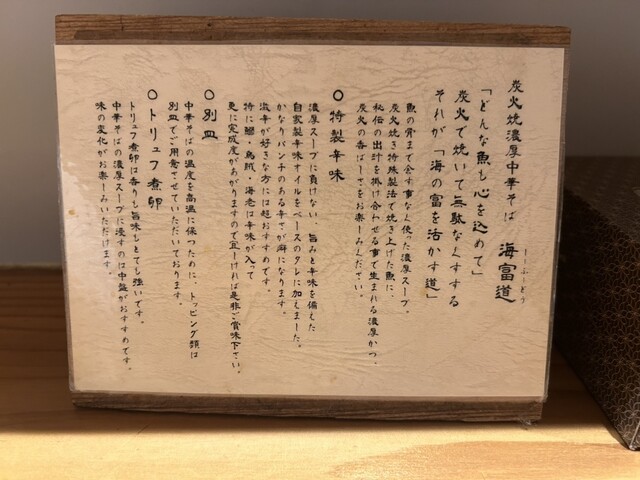 炭火焼濃厚中華そば 海富道
しーふーどう
「どんな魚も心を込めて」
炭火で焼いて無駄なくする
それが「海の富を活かす道」
魚の骨まで余す事なく使った濃厚スープ。
炭火焼き特殊製法で焼き上げた魚に、
秘伝の出汁を掛け合わせる事で生まれる濃厚かつ、
炭火の香ばしさをお楽しみください。
○特製辛味
濃厚スープに負けない、旨みと辛味を備えた
自家製辛味オイルをベースのタレに加えました。
かなりパンチのある辛さが癖になります。
激辛が好きな方には超おすすめです。
特に鱧・烏賊・海老は辛味が入って
更に完成度があがりますので宜しければ是非ご賞味下さい。
○別皿
中華そばの温度を高温に保つために、トッピング類は
別皿でご用意させていただいております。
○トリュフ煮卵
トリュフ煮卵は香りも旨味もとても強いです。
中華そばの濃厚スープに浸すのは中盤がおすすめです。
味の変化がお楽しみいただけます。